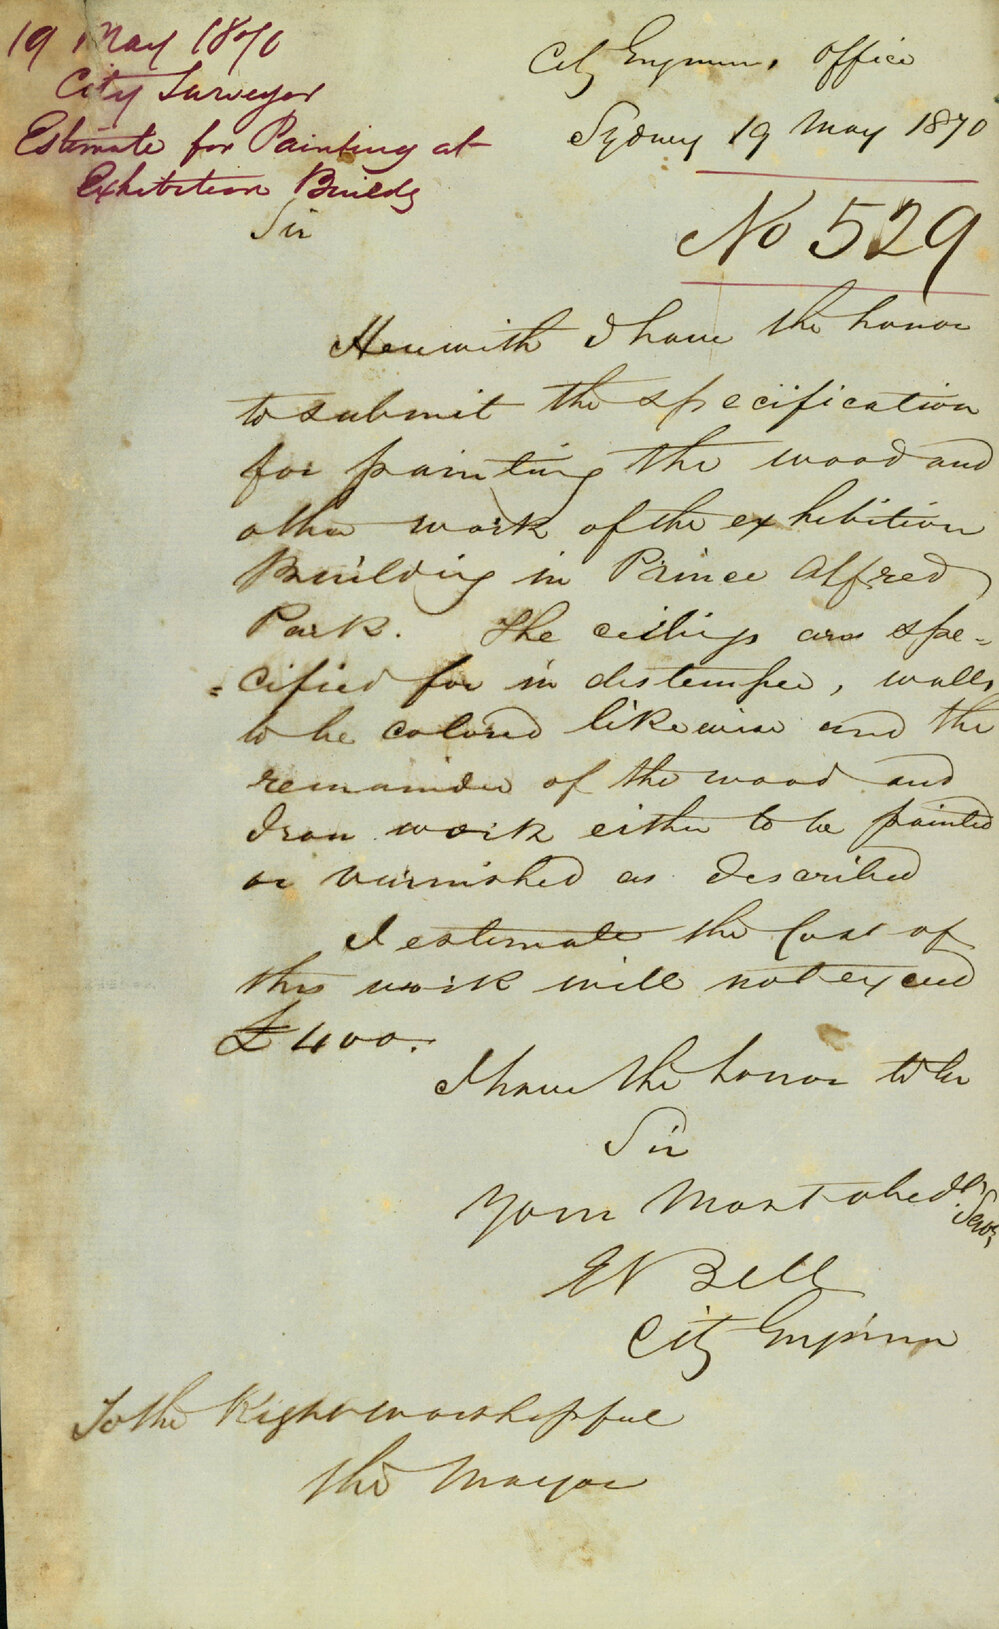 19 May 1870
City Surveyor
Estimate for Painting at
Exhibition Buildg
City Engineers Office
Sydney 19 May 1870
No 529
Sir
Herewith I have the honor
to submit the specification
for painting the wood and
other work of the exhibition
Building in Prince Alfred
Park. The ceilings are spe-
=cified for in distemper, walls
to be colored likewise and the
remainder of the wood and
Iron work either to be painted
or varnished as described
I estimate the Cost of
this work will not exceed
£400.
I have the honor to be
Sir
Your Most obedt Servt
E Bell
City Engineer
To the Right worshipful
the Mayor